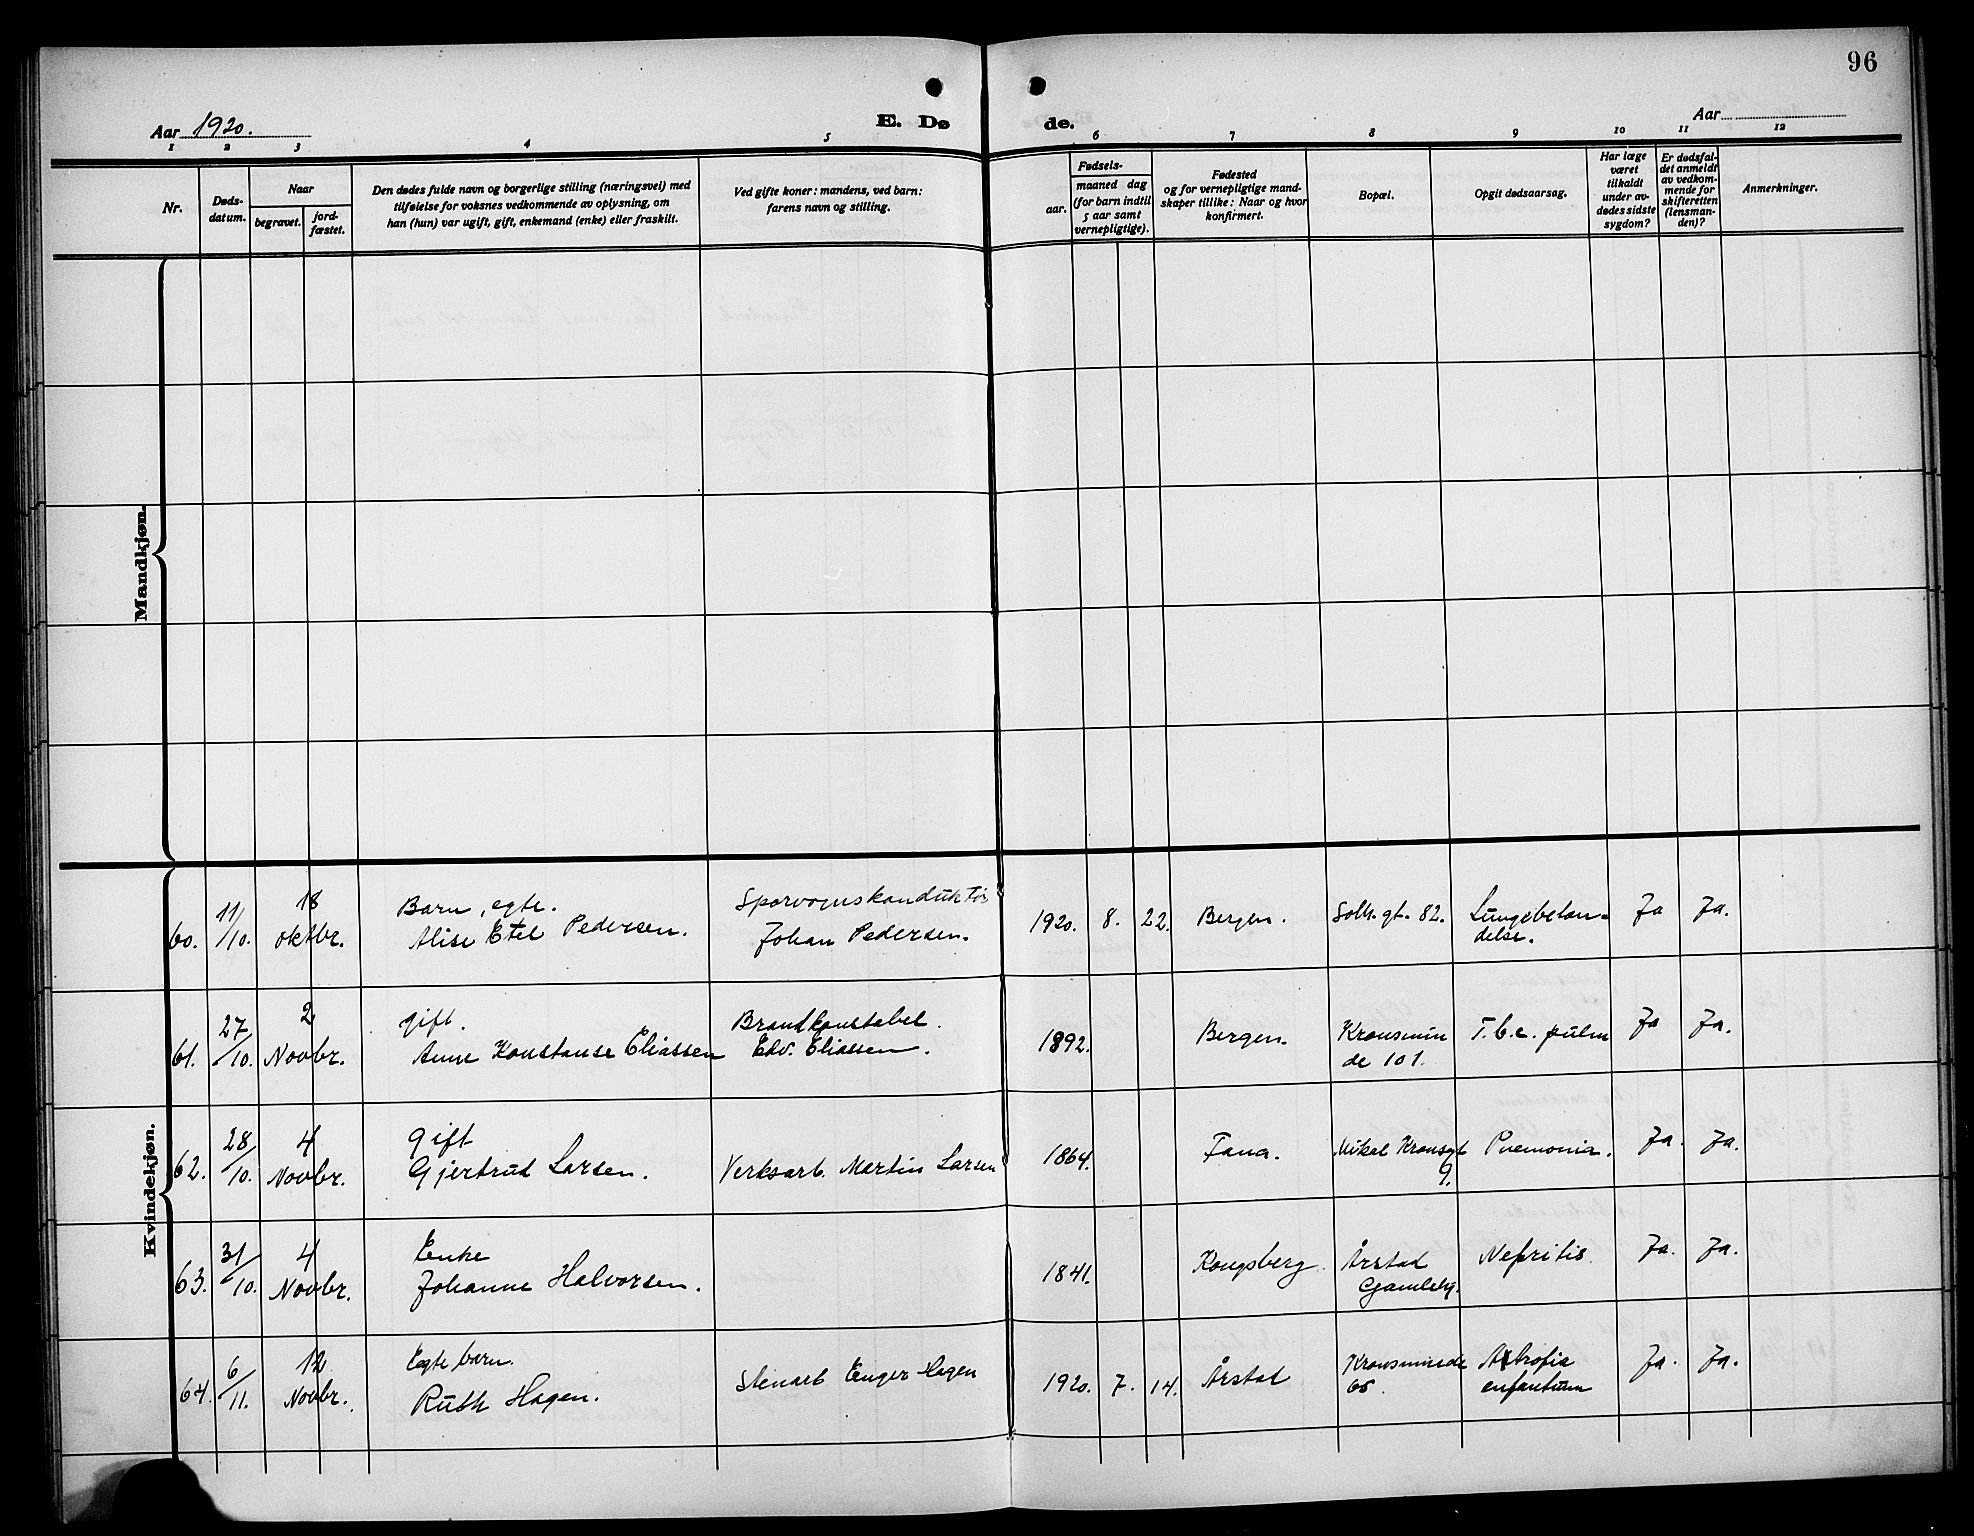 96
Aar 1920.
E. Dø
de.
Aar
1 2 3 4 5 6 7 8 9 10 11 12
Nr.
Døds-
datum.
Naar
begravet.
jord-
fæstet.
Den dødes fulde navn og borgerlige stilling (næringsvei) med
tilføielse for voksnes vedkommende av oplysning, om
han (hun) var ugift, gift, enkemand (enke) eller fraskilt.
Ved gifte koner: mandens, ved barn:
farens navn og stilling.
Fødsels-
aar.
maaned dag
(for barn indtil
5 aar samt
vernepligtige).
Fødested
og for vernepligtige mand-
skaper tillike: Naar og hvor
konfirmert.
Bopæl.
Opgit dødsaarsag.
Har læge
været
tilkaldt
under av-
dødes sidste
sygdom?
Er dødsfal-
det anmeldt
av vedkom-
mende for
skifteretten
(lensman-
den)?
Anmerkninger.
Mandkjøn.
Kvindekjøn.
60.
11/10.
18
oktbr.
Barn, egte.
Alise Etel Pedersen.
Sporvognskonduktør
Johan Pedersen.
1920. 8. 22.
Bergen.
Solh.gt. 82.
Lungebetæn=
delse.
Ja
Ja.
61.
27/10.
2
Novbr.
gift.
Anne Konstanse Eliassen
Brandkonstabel.
Edv. Eliassen.
1892.
Bergen.
Kronsmin
de 101.
T.b.c. pulm
Ja
Ja.
62.
28/10.
4
Novbr.
Gift
Gjertrud Larsen.
Verksarb. Martin Larsen
1864.
Fana.
Mikal Kronsgt
9.
Pnemonia.
Ja.
Ja.
63.
31/10.
4
Novbr.
Enke
Johanne Halvorsen.
1841.
Kongsberg.
Årstad
Gamleh.
Nefritis
Ja.
Ja.
64.
6/11.
12
Novbr.
Egte barn.
Ruth Hagen.
Stenarb Enger Hagen
1920. 7. 14.
Årstad
Kronsminde
65.
Atrofia
enfantum
Ja.
Ja.